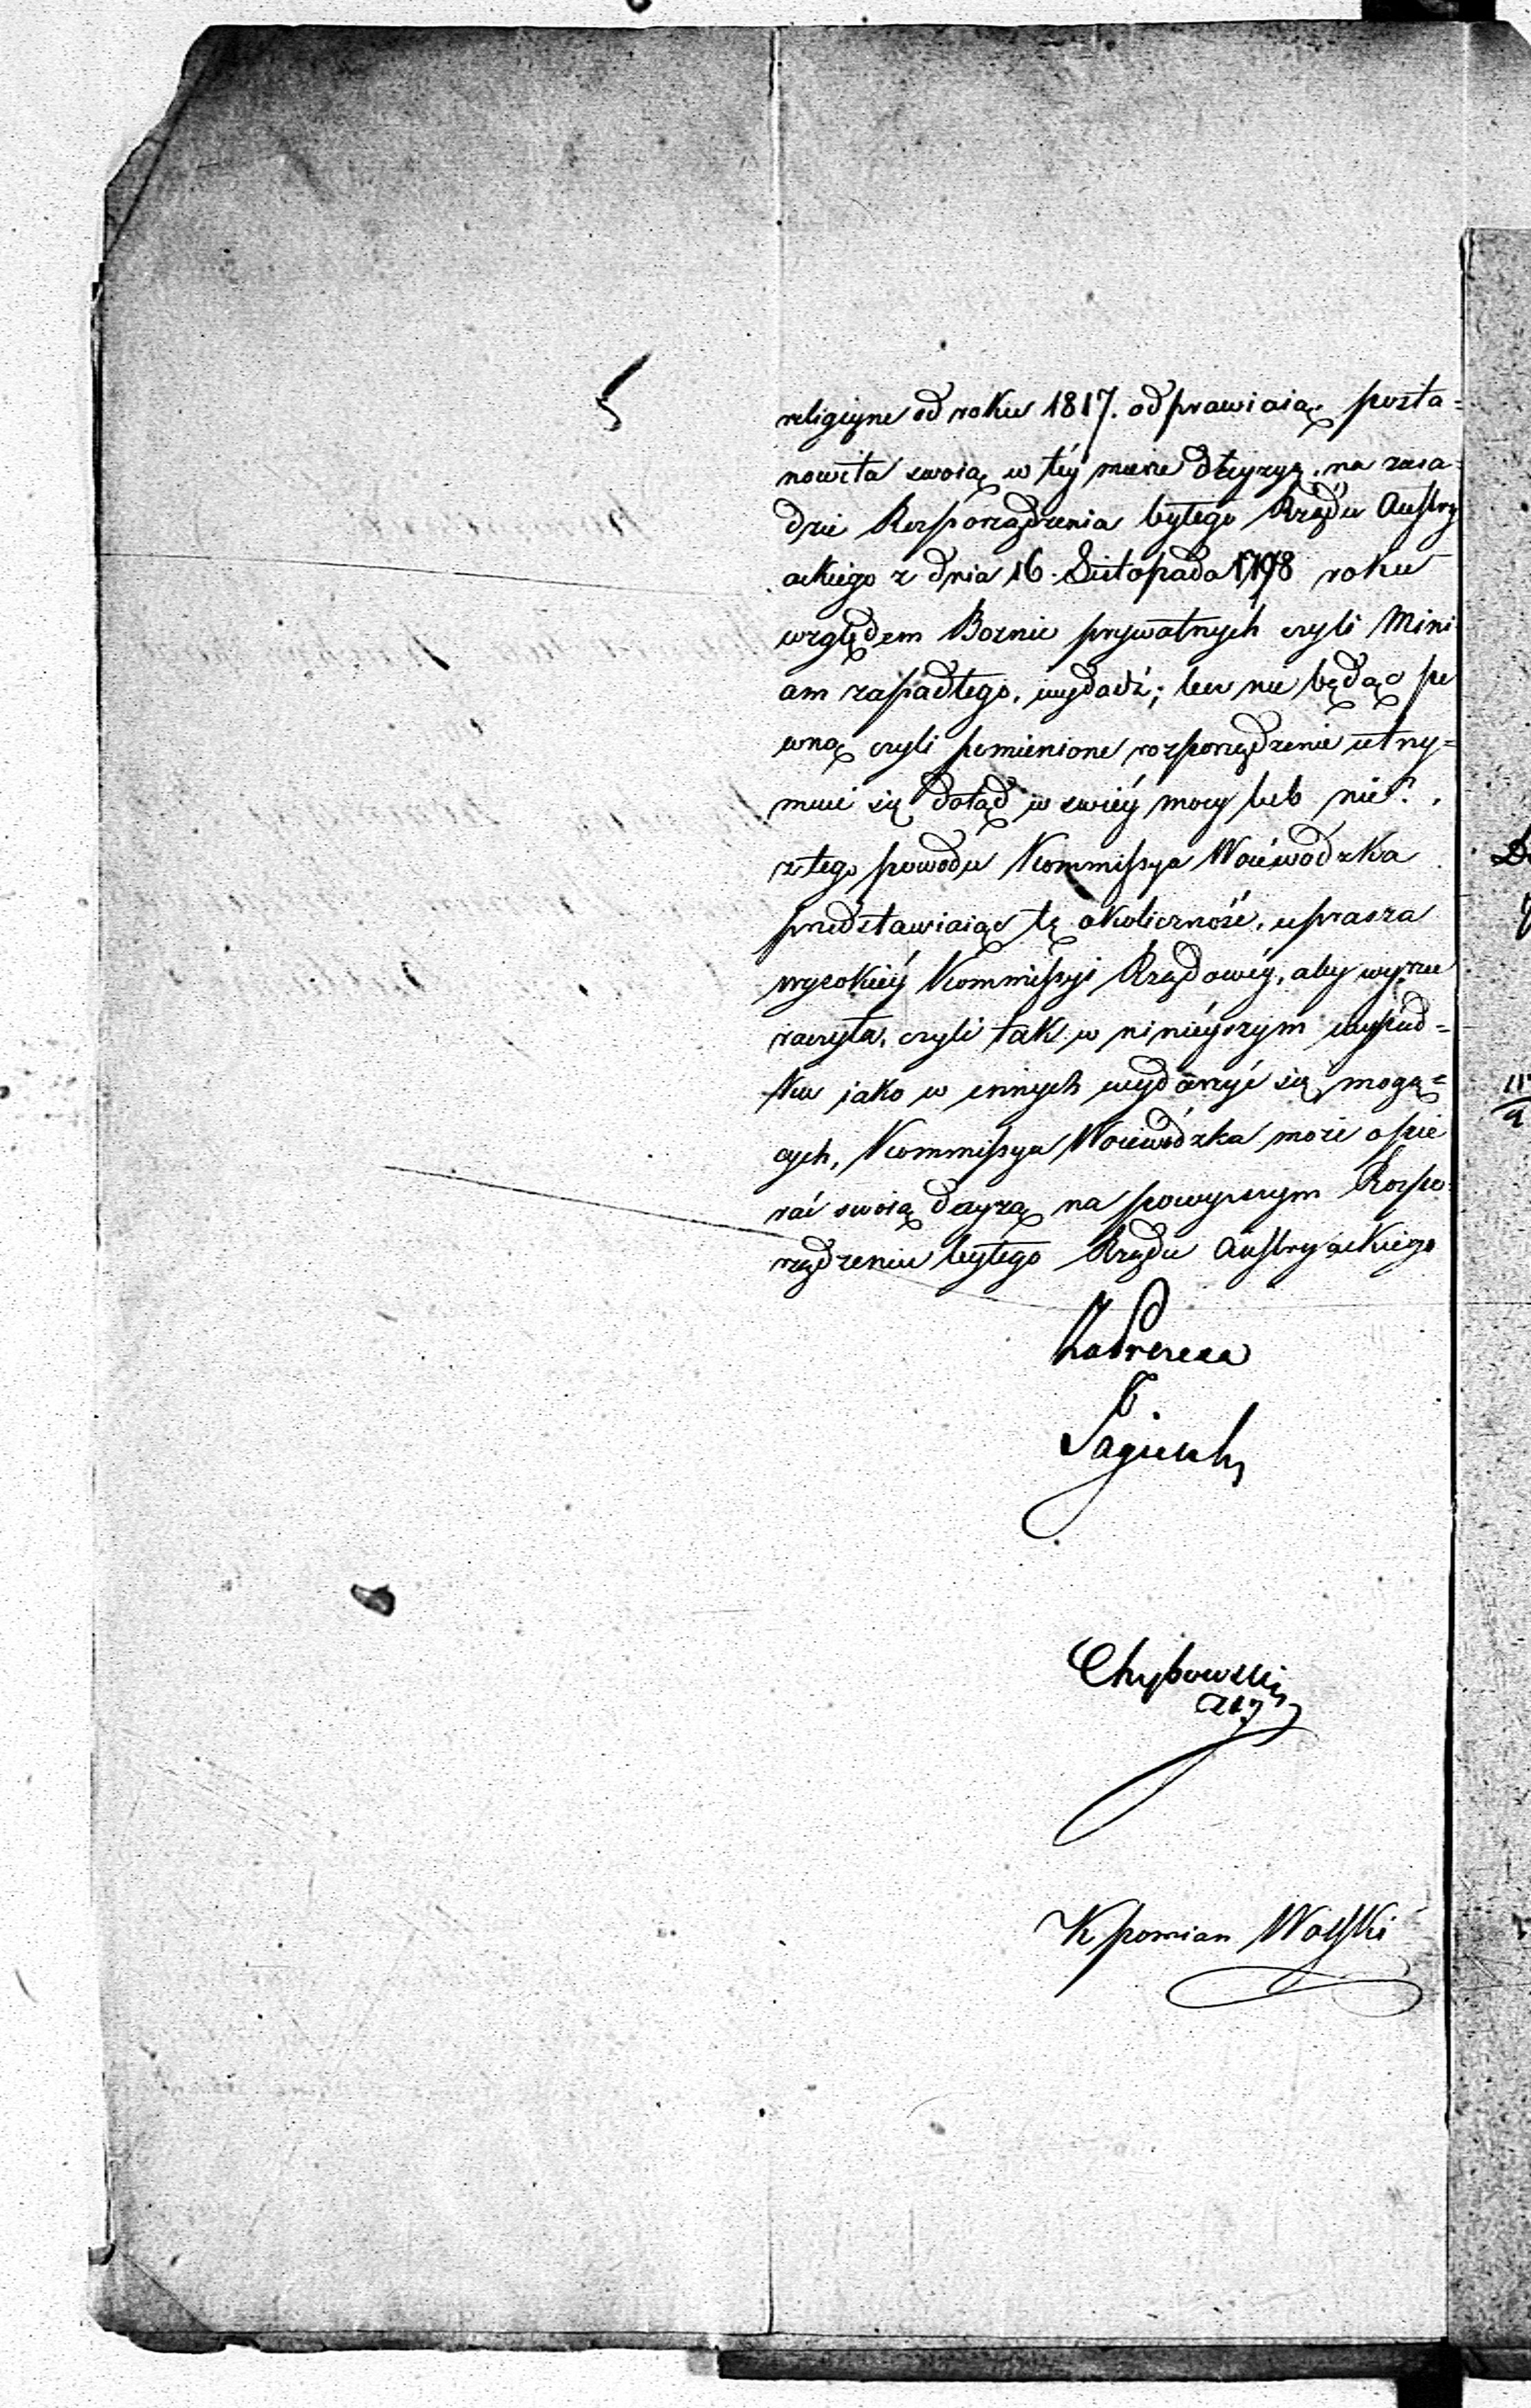 religijne od roku 1817. odprawiaią. posta=
nowiła swoią w téy mierze decyzyą, na zasa=
dzie Rozporządzenia byłego Rządu Austry
ackiego z dnia 16. Listopada 1798 roku
względem Boznic prywatnych czyli Mini
am zapadłego, wydadź; lecz nie będąc pe
wną czyli pomienione rozporządzenie utrzy=
muie się dotąd w swéy mocy lub nie?.
z tego powodu Kommissya Woiewódzka
przedstawiaiąc tę okoliczność, uprasza
wysokiéy Kommissyi Rządowéy, aby wyrzec
raczyła, czyli tak w ninieyszym wypad=
ku jako w innych wydarzyć się mogą=
cych, Kommissya Woiewódzka może opie
rać swoią decyzą na powyższym Rozpo=
rządzeniu byłego Rządu Austryackiego
Za Prezesa
Chybowski
K pomian Wolski